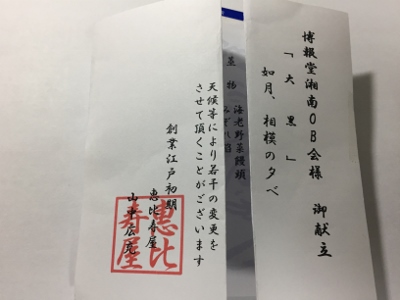 博報堂湘南OB会様 御献立
「大黒」
如月、相模の夕べ
蒸物 海老野菜饅頭
天候等により若干の変更を
させて頂くことがございます
創業江戸初期
恵比寿屋
恵比
寿屋